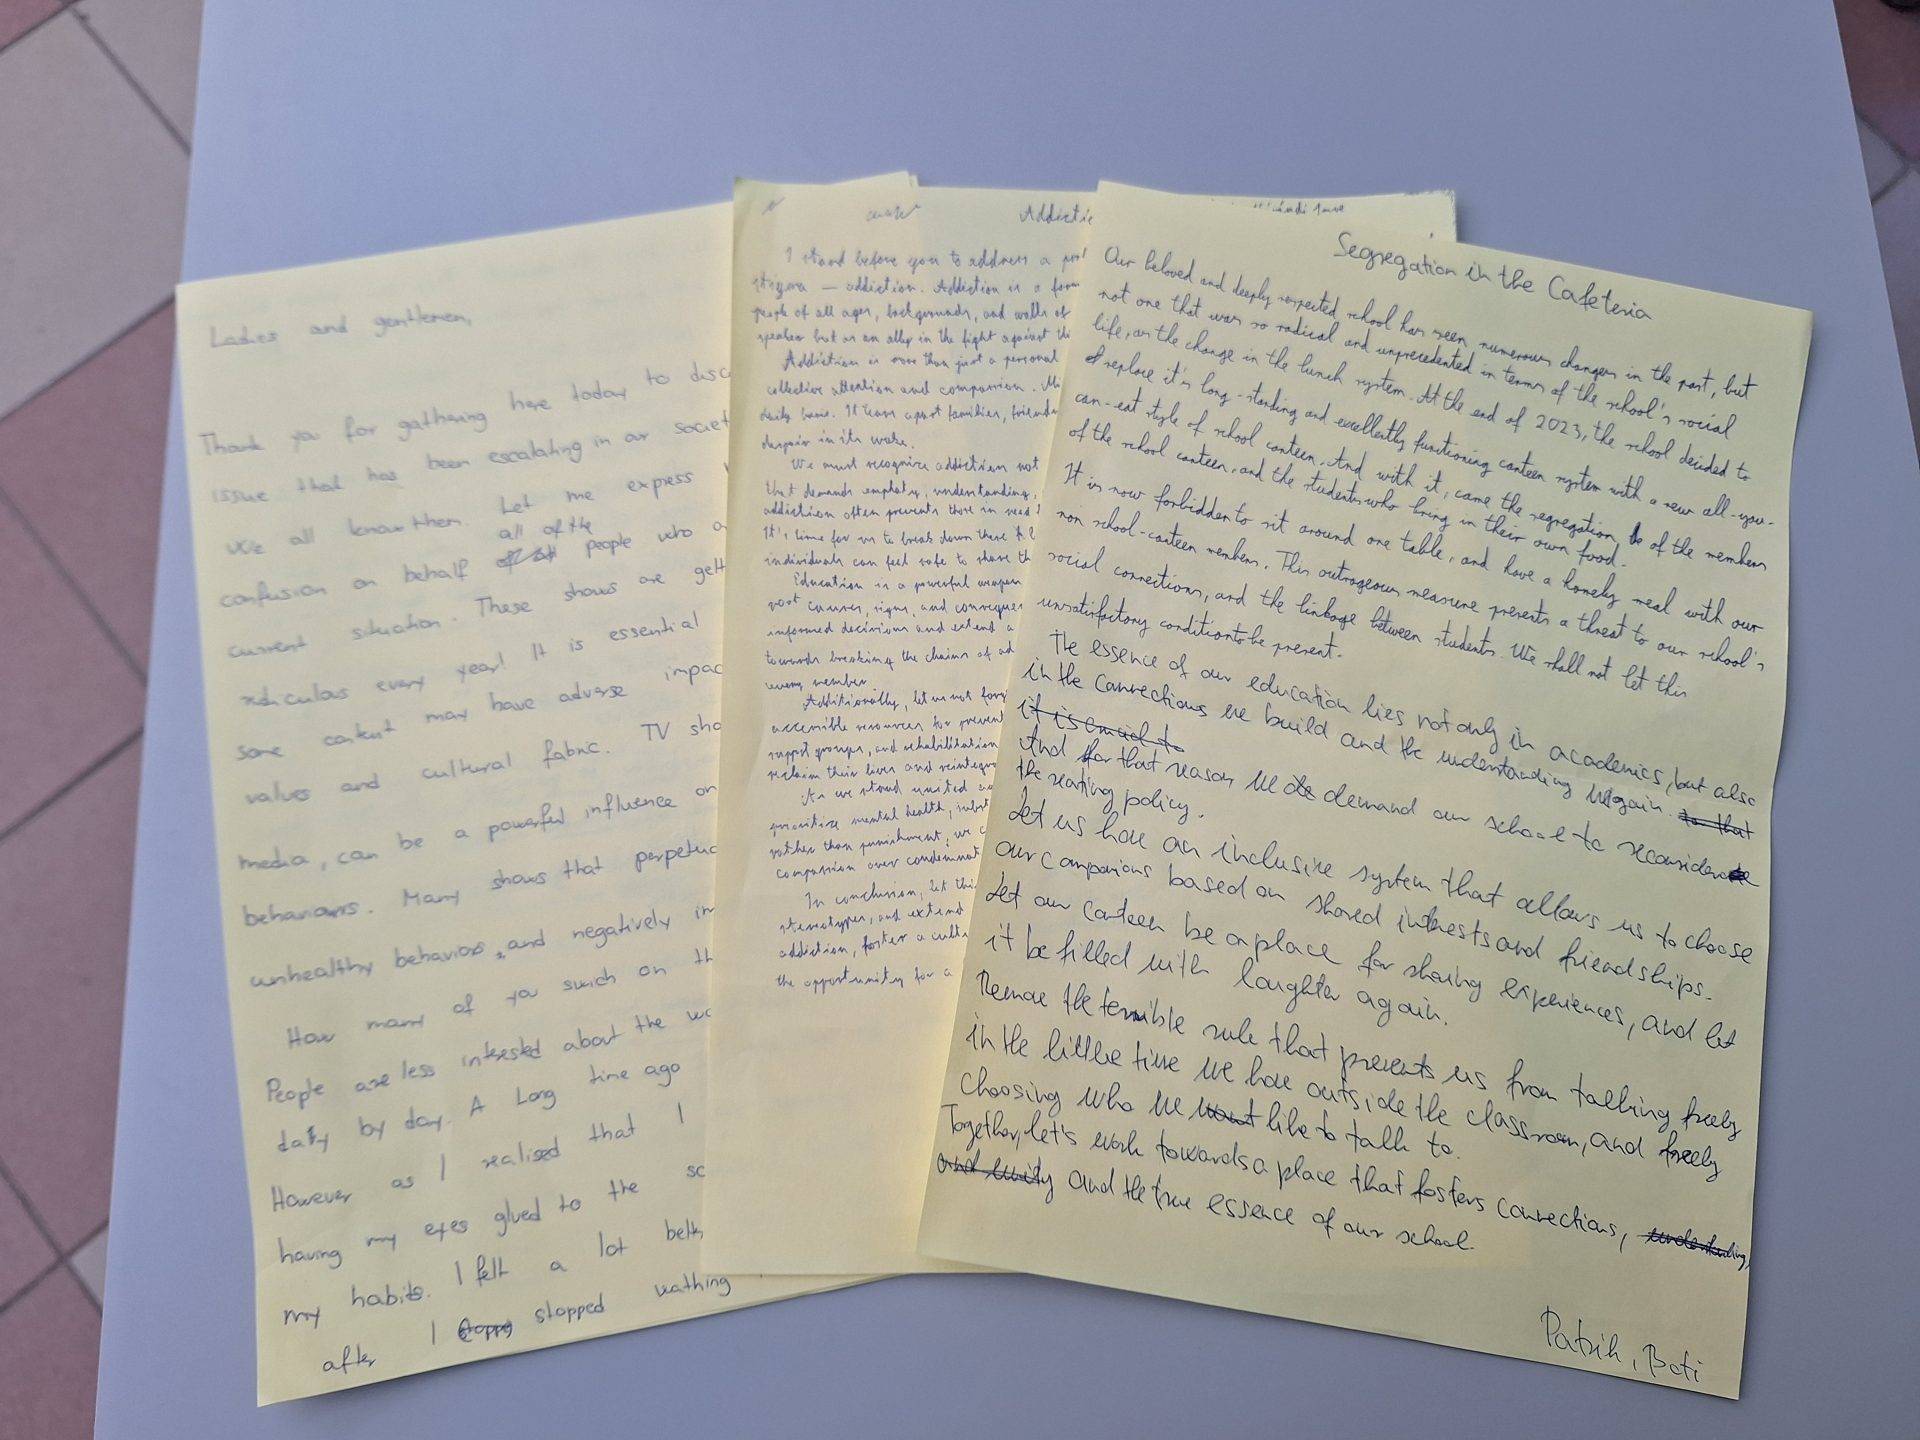 Ladies and gentlemen,
Thank you for gathering here today to disc
issue that has been escalating in our societ
We all know them. Let me express
all of the
confusion on behalf people who a
current situation. These shows are gett
ridiculous every year! It is essential
some content may have adverse impac
values and cultural fabric. TV sho
media, can be a powerful influence on
behaviours. Many shows that perpetua
unhealthy behaviors, and negatively im
How many of you swich on th
People are less interested about the wo
daily by day. A Long time ago
However as I realised that I
having my eyes glued to the sc
my habits. I felt a lot bett
after I stopped wathing
Addictio
I stand before you to address a
stigma — addiction. Addiction is a for
people of all ages, backgrounds, and walks of
speaker but as an ally in the fight against thi
Addiction is more than just a personal
collective attention and compassion.
daily basis. It tears apart families, friends
despair in its wake.
We must recognize addiction not
that demands emphaty, understanding,
addiction often prevents those in need
It's time for us to break down these
individuals can feel safe to share th
Education is a powerful weapon
root causes, signs, and conseque
informed decisions and extend a
towards breaking the chains of ad
every member
Additionally, let us not forg
accessible resources for prevent
support groups, and rehabilitation
reclaim their lives and reintegra
As we stand united
prioritize mental health,
rather than punishment, we c
compassion over condemnat
In conclusion, let this
stereotypes, and extend
addiction, foster a cultu
the opportunity for a
Segregation in the Cafeteria
Our beloved and deeply respected school has seen numerous changes in the past, but
not one that was so radical and unprecedented in terms of the school's social
life, as the change in the lunch system. At the end of 2023, the school decided to
replace it's long-standing and excellently functioning canteen system with a new all-you-
can-eat style of school canteen. And with it, came the segregation, of the members
of the school canteen, and the students who bring in their own food.
It is now forbidden to sit around one table, and have a homely meal with our
non school-canteen members. This outrageous measure presents a threat to our school's
social connections, and the linkage between students. We shall not let this
unsatisfactory condition to be present.
The essence of our education lies not only in academics, but also
in the connections we build and the understanding we gain. to that
it is crucial to
And for that reason, we demand our school to reconsider
the seating policy.
Let us have an inclusive system that allows us to choose
our companions based on shared interests and friendships.
Let our canteen be a place for sharing experiences, and let
it be filled with laughter again.
Remove the terrible rule that prevents us from talking freely
in the little time we have outside the classroom, and freely
choosing who we want like to talk to.
Together, let's work towards a place that fosters connections, understanding,
and unity and the true essence of our school.
Patrik, Boti